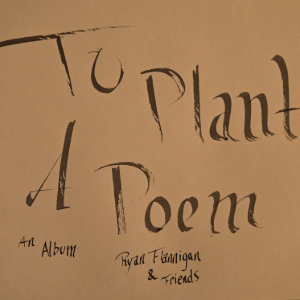 To Plant
A Poem
An Album
Ryan Flannigan
& Friends